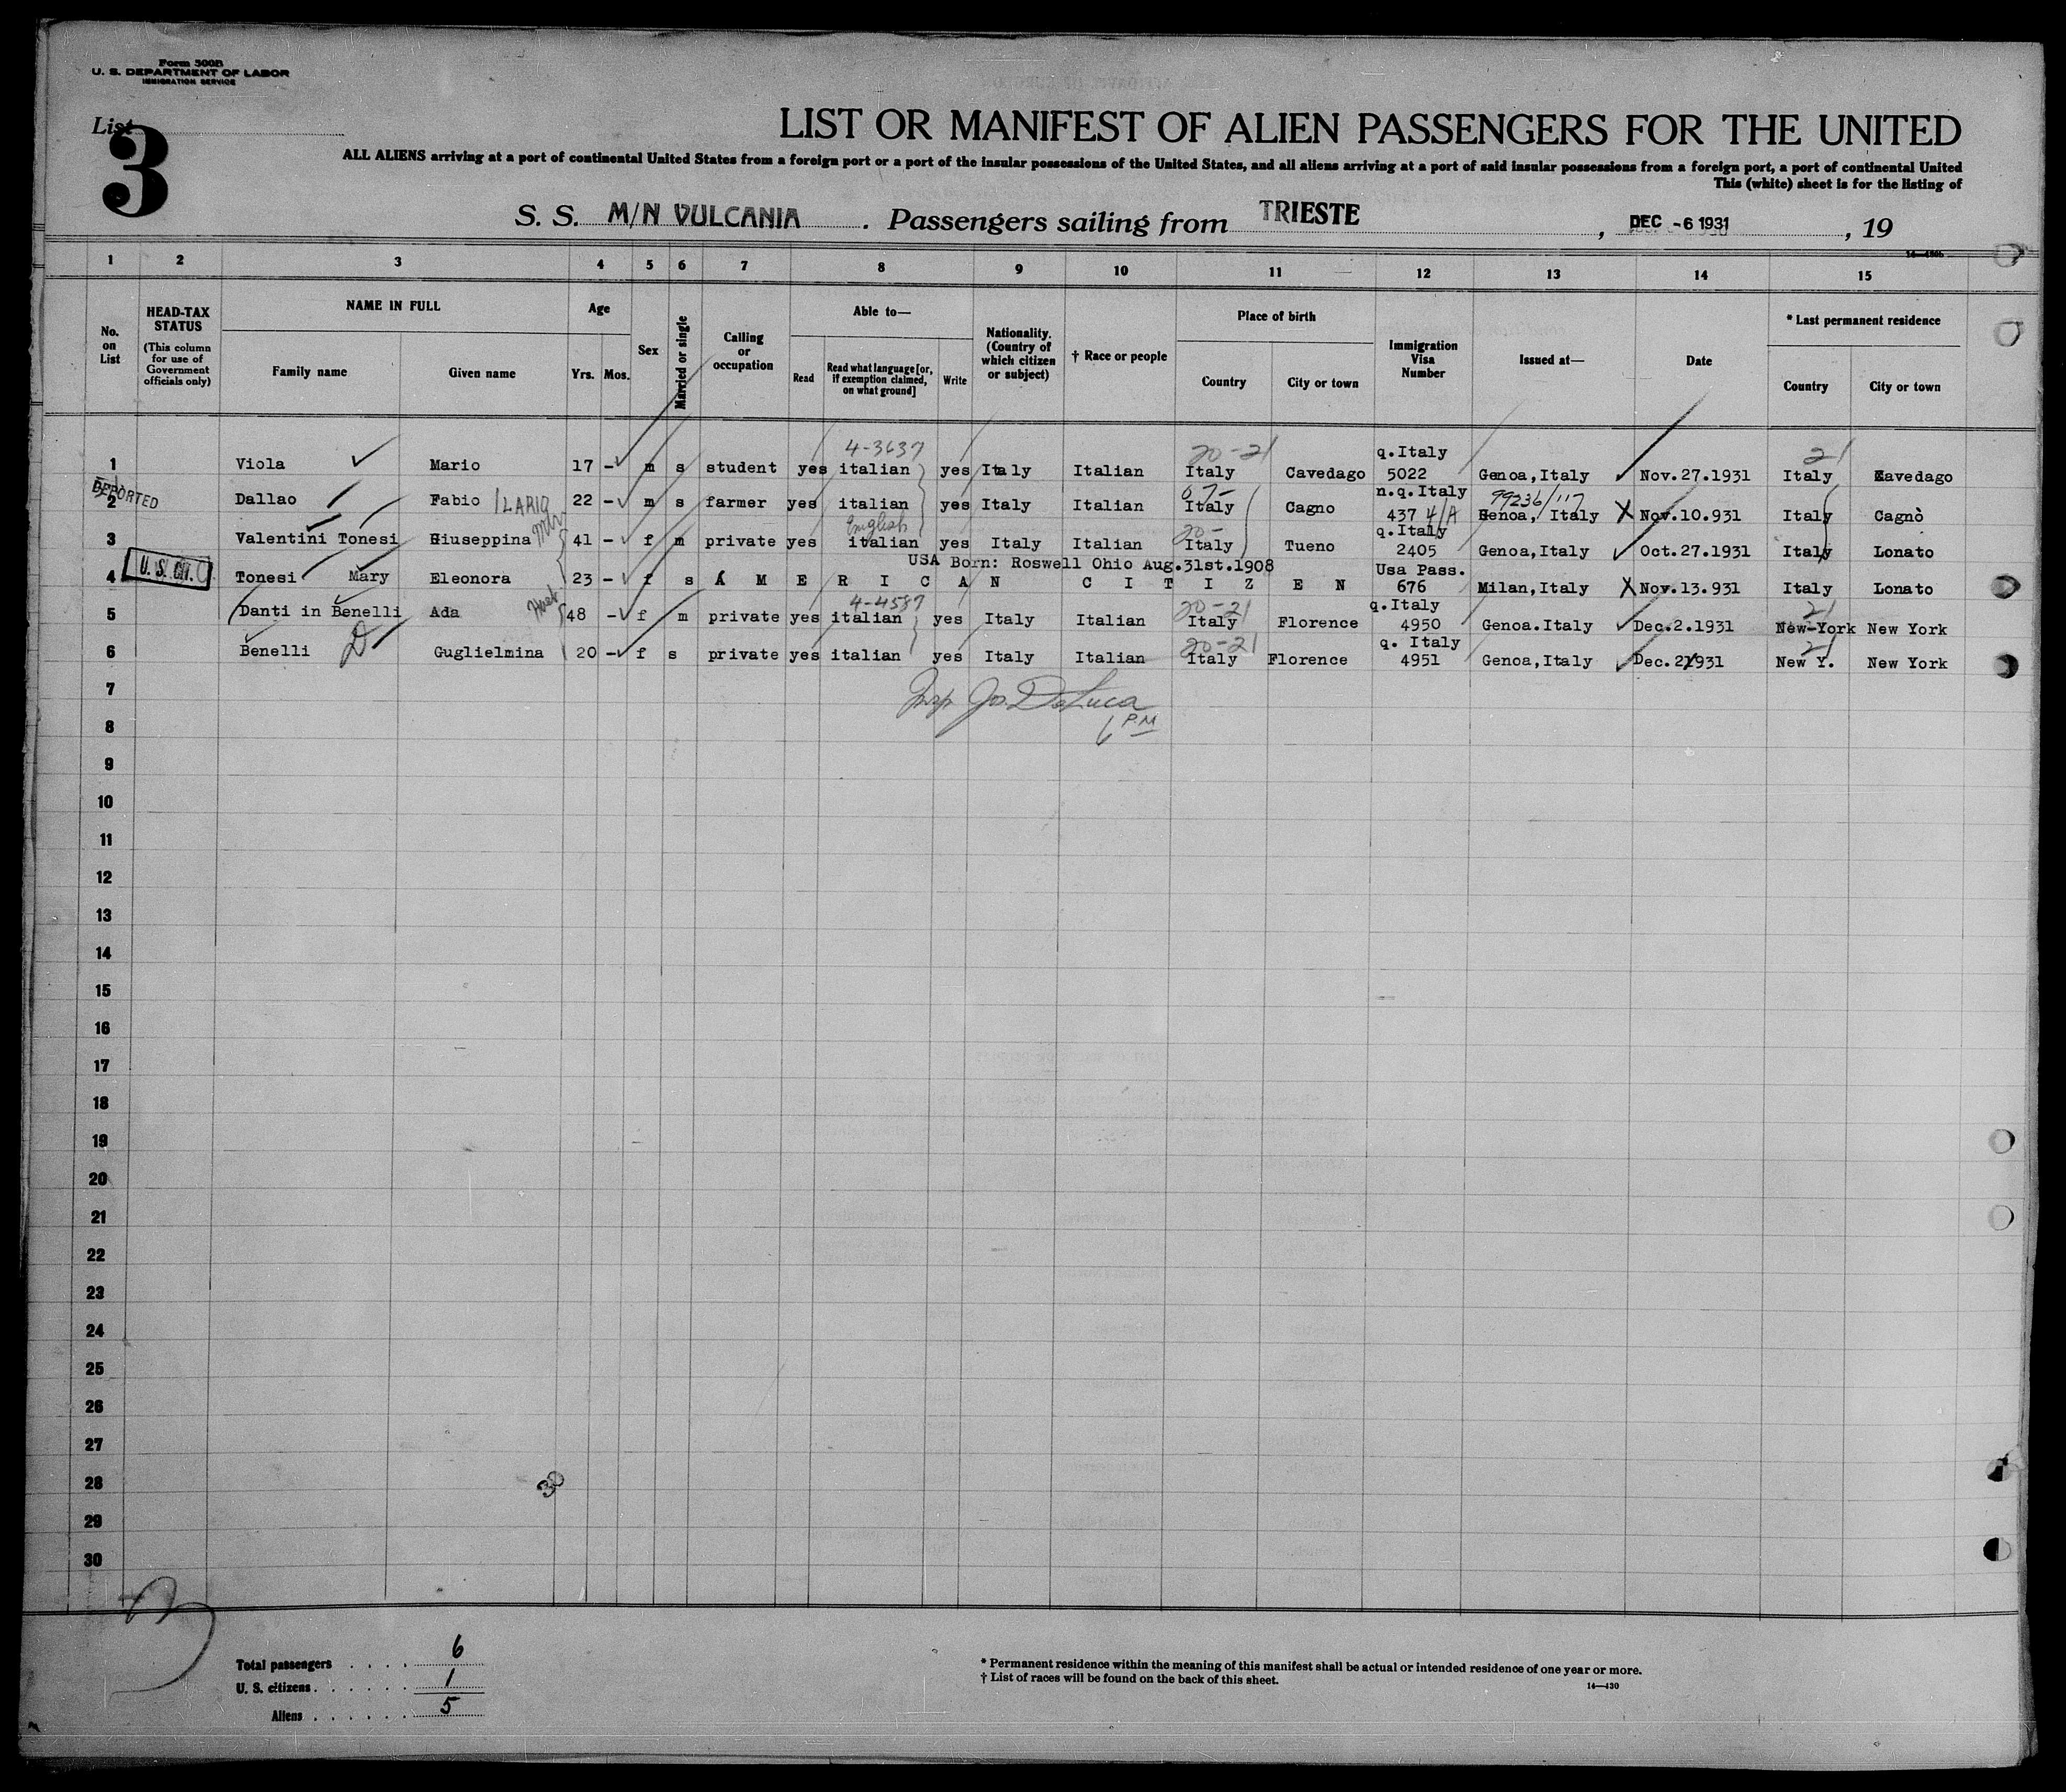 Form 500B
U. S. DEPARTMENT OF LABOR
IMMIGRATION SERVICE
List
3
LIST OR MANIFEST OF ALIEN PASSENGERS FOR THE UNITED
ALL ALIENS arriving at a port of continental United States from a foreign port or a port of the insular possessions of the United States, and all aliens arriving at a port of said insular possessions from a foreign port, a port of continental United
This (white) sheet is for the listing of
S. S. M/N VULCANIA. Passengers sailing from TRIESTE, DEC -6 1931, 19
1 2 3 4 5 6 7 8 9 10 11 12 13 14 15
No. on List
HEAD-TAX STATUS (This column for use of Government officials only)
NAME IN FULL
Family name Given name
Age
Yrs. Mos.
Sex
Married or single
Calling or occupation
Able to—
Read Read what language [or, if exemption claimed, on what ground] Write
Nationality. (Country of which citizen or subject)
† Race or people
Place of birth
Country City or town
Immigration Visa Number
Issued at—
Date
* Last permanent residence
Country City or town
4-3637 20-21 q.Italy 21
1 Viola Mario 17 - m s student yes italian yes Italy Italian Italy Cavedago 5022 Genoa,Italy Nov.27.1931 Italy Cavedago
DEPORTED 67- n.q.Italy 99236/117
2 Dallao Fabio ILARIO 22 - m s farmer yes italian yes Italy Italian Italy Cagno 437 4/A Genoa, Italy X Nov.10.931 Italy Cagnò
English 20- q.Italy
3 Valentini Tonesi Giuseppina 41 - f m private yes italian yes Italy Italian Italy Tueno 2405 Genoa,Italy Oct.27.1931 Italy Lonato
U. S. CIT. USA Born: Roswell Ohio Aug.31st.1908 Usa Pass.
4 Tonesi Mary Eleonora 23 - f s A M E R I C A N C I T I Z E N 676 Milan,Italy X Nov.13.931 Italy Lonato
4-4587 20-21 q.Italy 21
5 Danti in Benelli Ada 48 - f m private yes italian yes Italy Italian Italy Florence 4950 Genoa.Italy Dec.2.1931 New-York New York
20-21 q. Italy 21
6 Benelli Guglielmina 20 - f s private yes italian yes Italy Italian Italy Florence 4951 Genoa,Italy Dec.2/931 New Y. New York
7
Insp Jos. DeLuca
6 PM
8
9
10
11
12
13
14
15
16
17
18
19
20
21
22
23
24
25
26
27
28
29
30
Total passengers . . . . 6
U. S. citizens . . . . . . 1
Aliens . . . . . . 5
* Permanent residence within the meaning of this manifest shall be actual or intended residence of one year or more.
† List of races will be found on the back of this sheet.
14—430